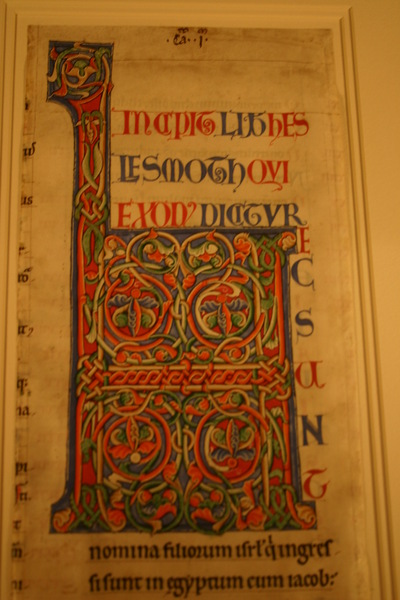 .Ca. I.
INCIPIT LIB hEL
LESMOTh QVI
EXOD' DICITVR
hEC SUNT
nomina filiorum isrl' q ingres-
si sunt in egyptum cum iacob: